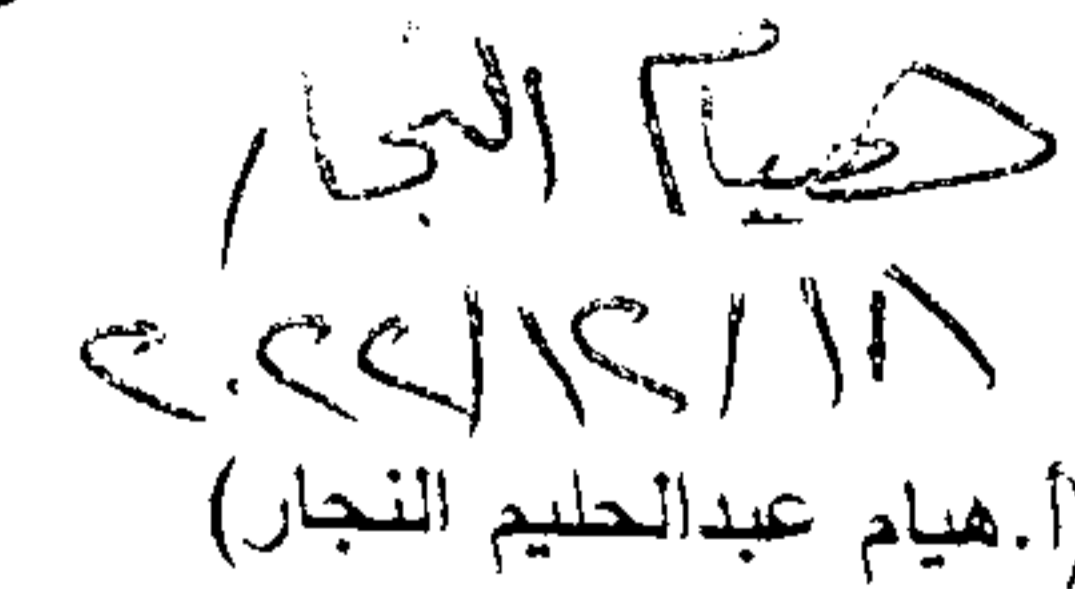 هيام النجار
١٨ / ١٢ / ٢٠٢٢
(أ.هيام عبدالحليم النجار)